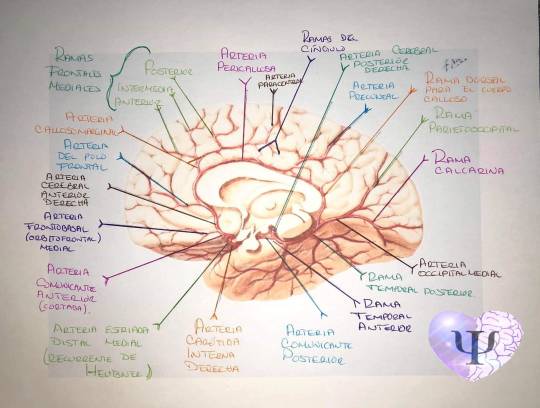 RAMAS
FRONTALES
MEDIALES
POSTERIOR
INTERMEDIA
ANTERIOR
ARTERIA
PERICALLOSA
ARTERIA
PARACENTRAL
RAMAS DEL
CÍNGULO
ARTERIA CEREBRAL
POSTERIOR
DERECHA
ARTERIA
PRECUNEAL
RAMA DORSAL
PARA EL CUERPO
CALLOSO
RAMA
PARIETOOCCIPITAL
RAMA
CALCARINA
ARTERIA
CALLOSOMARGINAL
ARTERIA
DEL POLO
FRONTAL
ARTERIA
CEREBRAL
ANTERIOR
DERECHA
ARTERIA
FRONTOBASAL
(ORBITOFRONTAL)
MEDIAL
ARTERIA
COMUNICANTE
ANTERIOR
(CORTADA).
ARTERIA ESTRIADA
DISTAL MEDIAL
(RECURRENTE DE
HEUBNER)
ARTERIA
CARÓTIDA
INTERNA
DERECHA
ARTERIA
COMUNICANTE
POSTERIOR
RAMA
TEMPORAL
ANTERIOR
RAMA
TEMPORAL POSTERIOR
ARTERIA
OCCIPITAL MEDIAL
Ψ